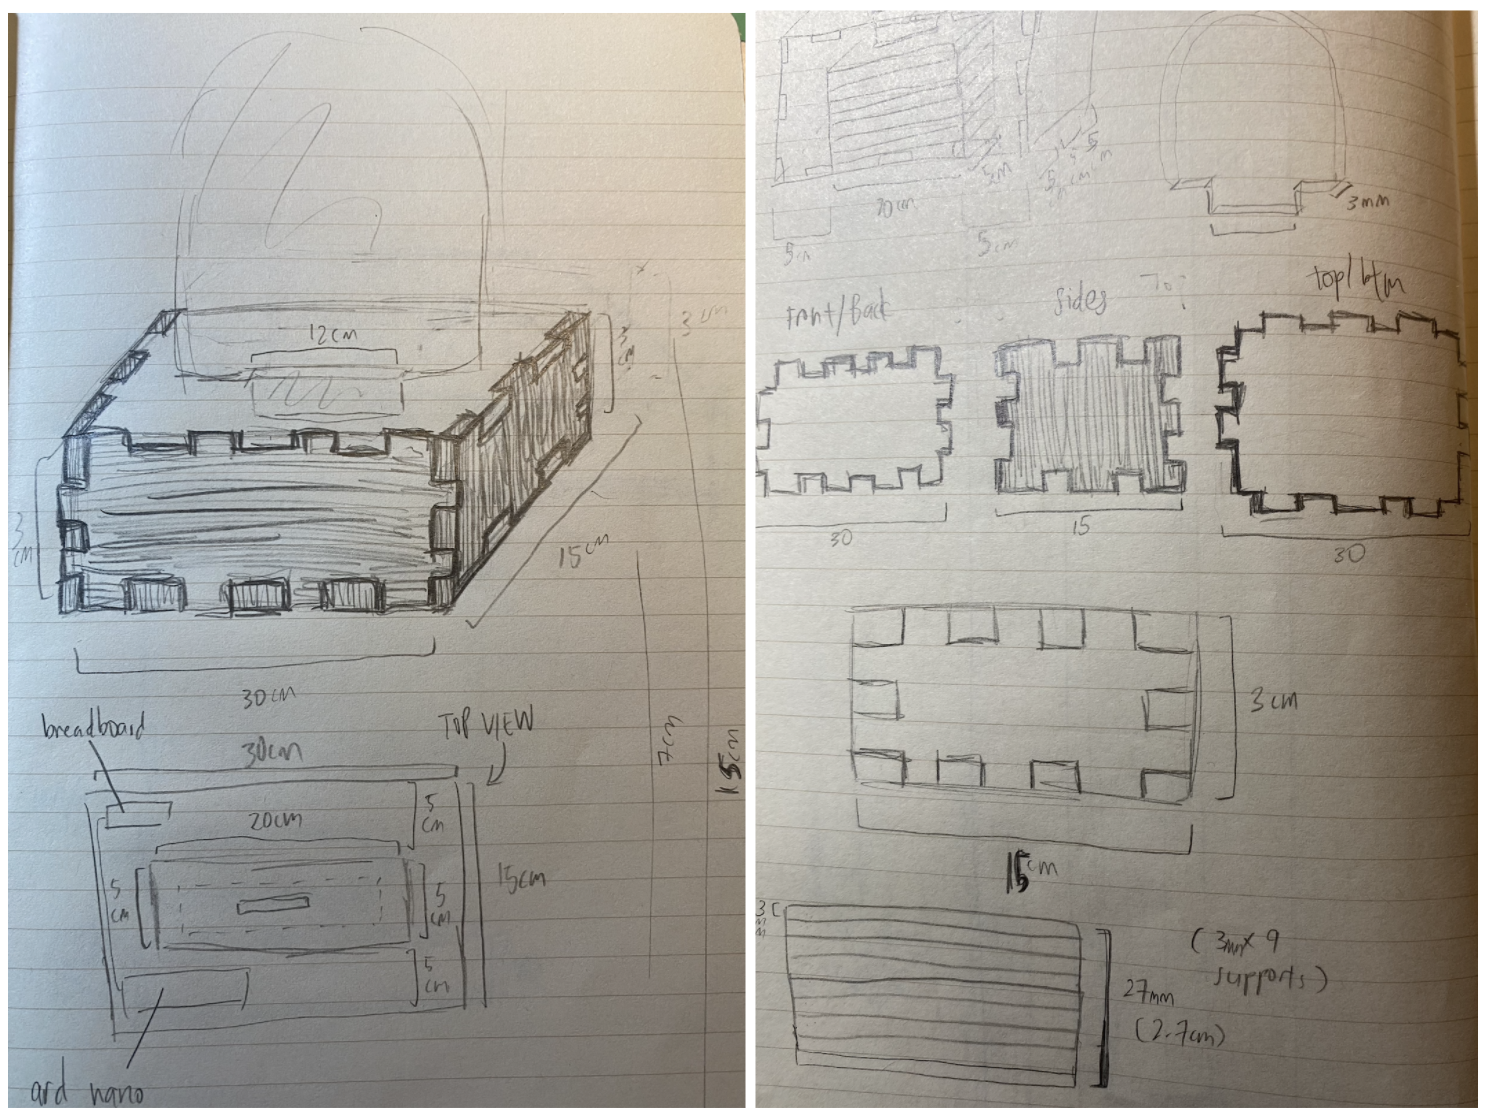 12cm
3 cm
3 cm
3 cm
15cm
30cm
breadboard
TOP VIEW
30cm
7cm
15cm
20cm
5 cm
5 cm
5 cm
15cm
5 cm
ard nano
5cm
5cm
20cm
5cm
3mm
Front/Back
sides
top/btm
30
15
30
3cm
15cm
3 mm
(3mm x 9
supports)
27mm
(2.7cm)